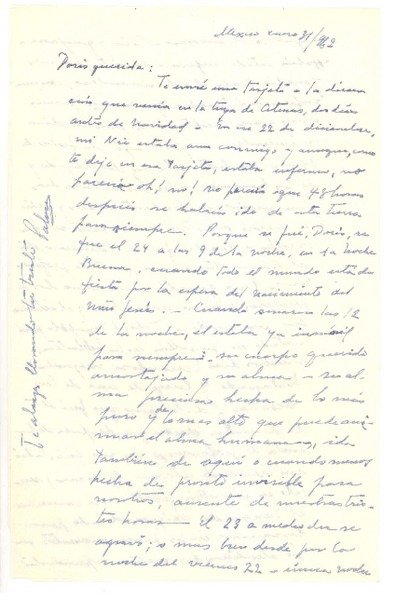 Mexico enero 31/962
Doris querida:
Te envié una tarjeta a la direcc
ción que venía en la tuya de Atenas, dos días
antes de navidad. En ese 22 de diciembre,
mi Nis estaba aun conmigo y aunque, como
te dije en esa tarjeta, estaba enfermo, no
parecía oh! no! no parecía que 48 horas
después se habría ido de esta tierra
para siempre. Porque se fué, Doris, se
fue el 24 a las 9 de la noche, en la Noche
Buena, cuando todo el mundo está de
fiesta por la espera del nacimiento del
niño Jesús. - Cuando sonaron las 12
de la noche, él estaba ya inmóvil
para siempre. su cuerpo querido
amortajado y su alma - su al-
ma preciosa hecha de lo más
puro y de lo mas alto que puede ani-
mar el alma humana, ida
también de aquí o cuando menos
hecha de pronto invisible para
nosotros, ausente de nuestras tris-
tes horas - El 23 a mediodía se
agravó; o mas bien desde por la
noche del viernes 22 - única noche
Te abrazo llorando tu triste Palma